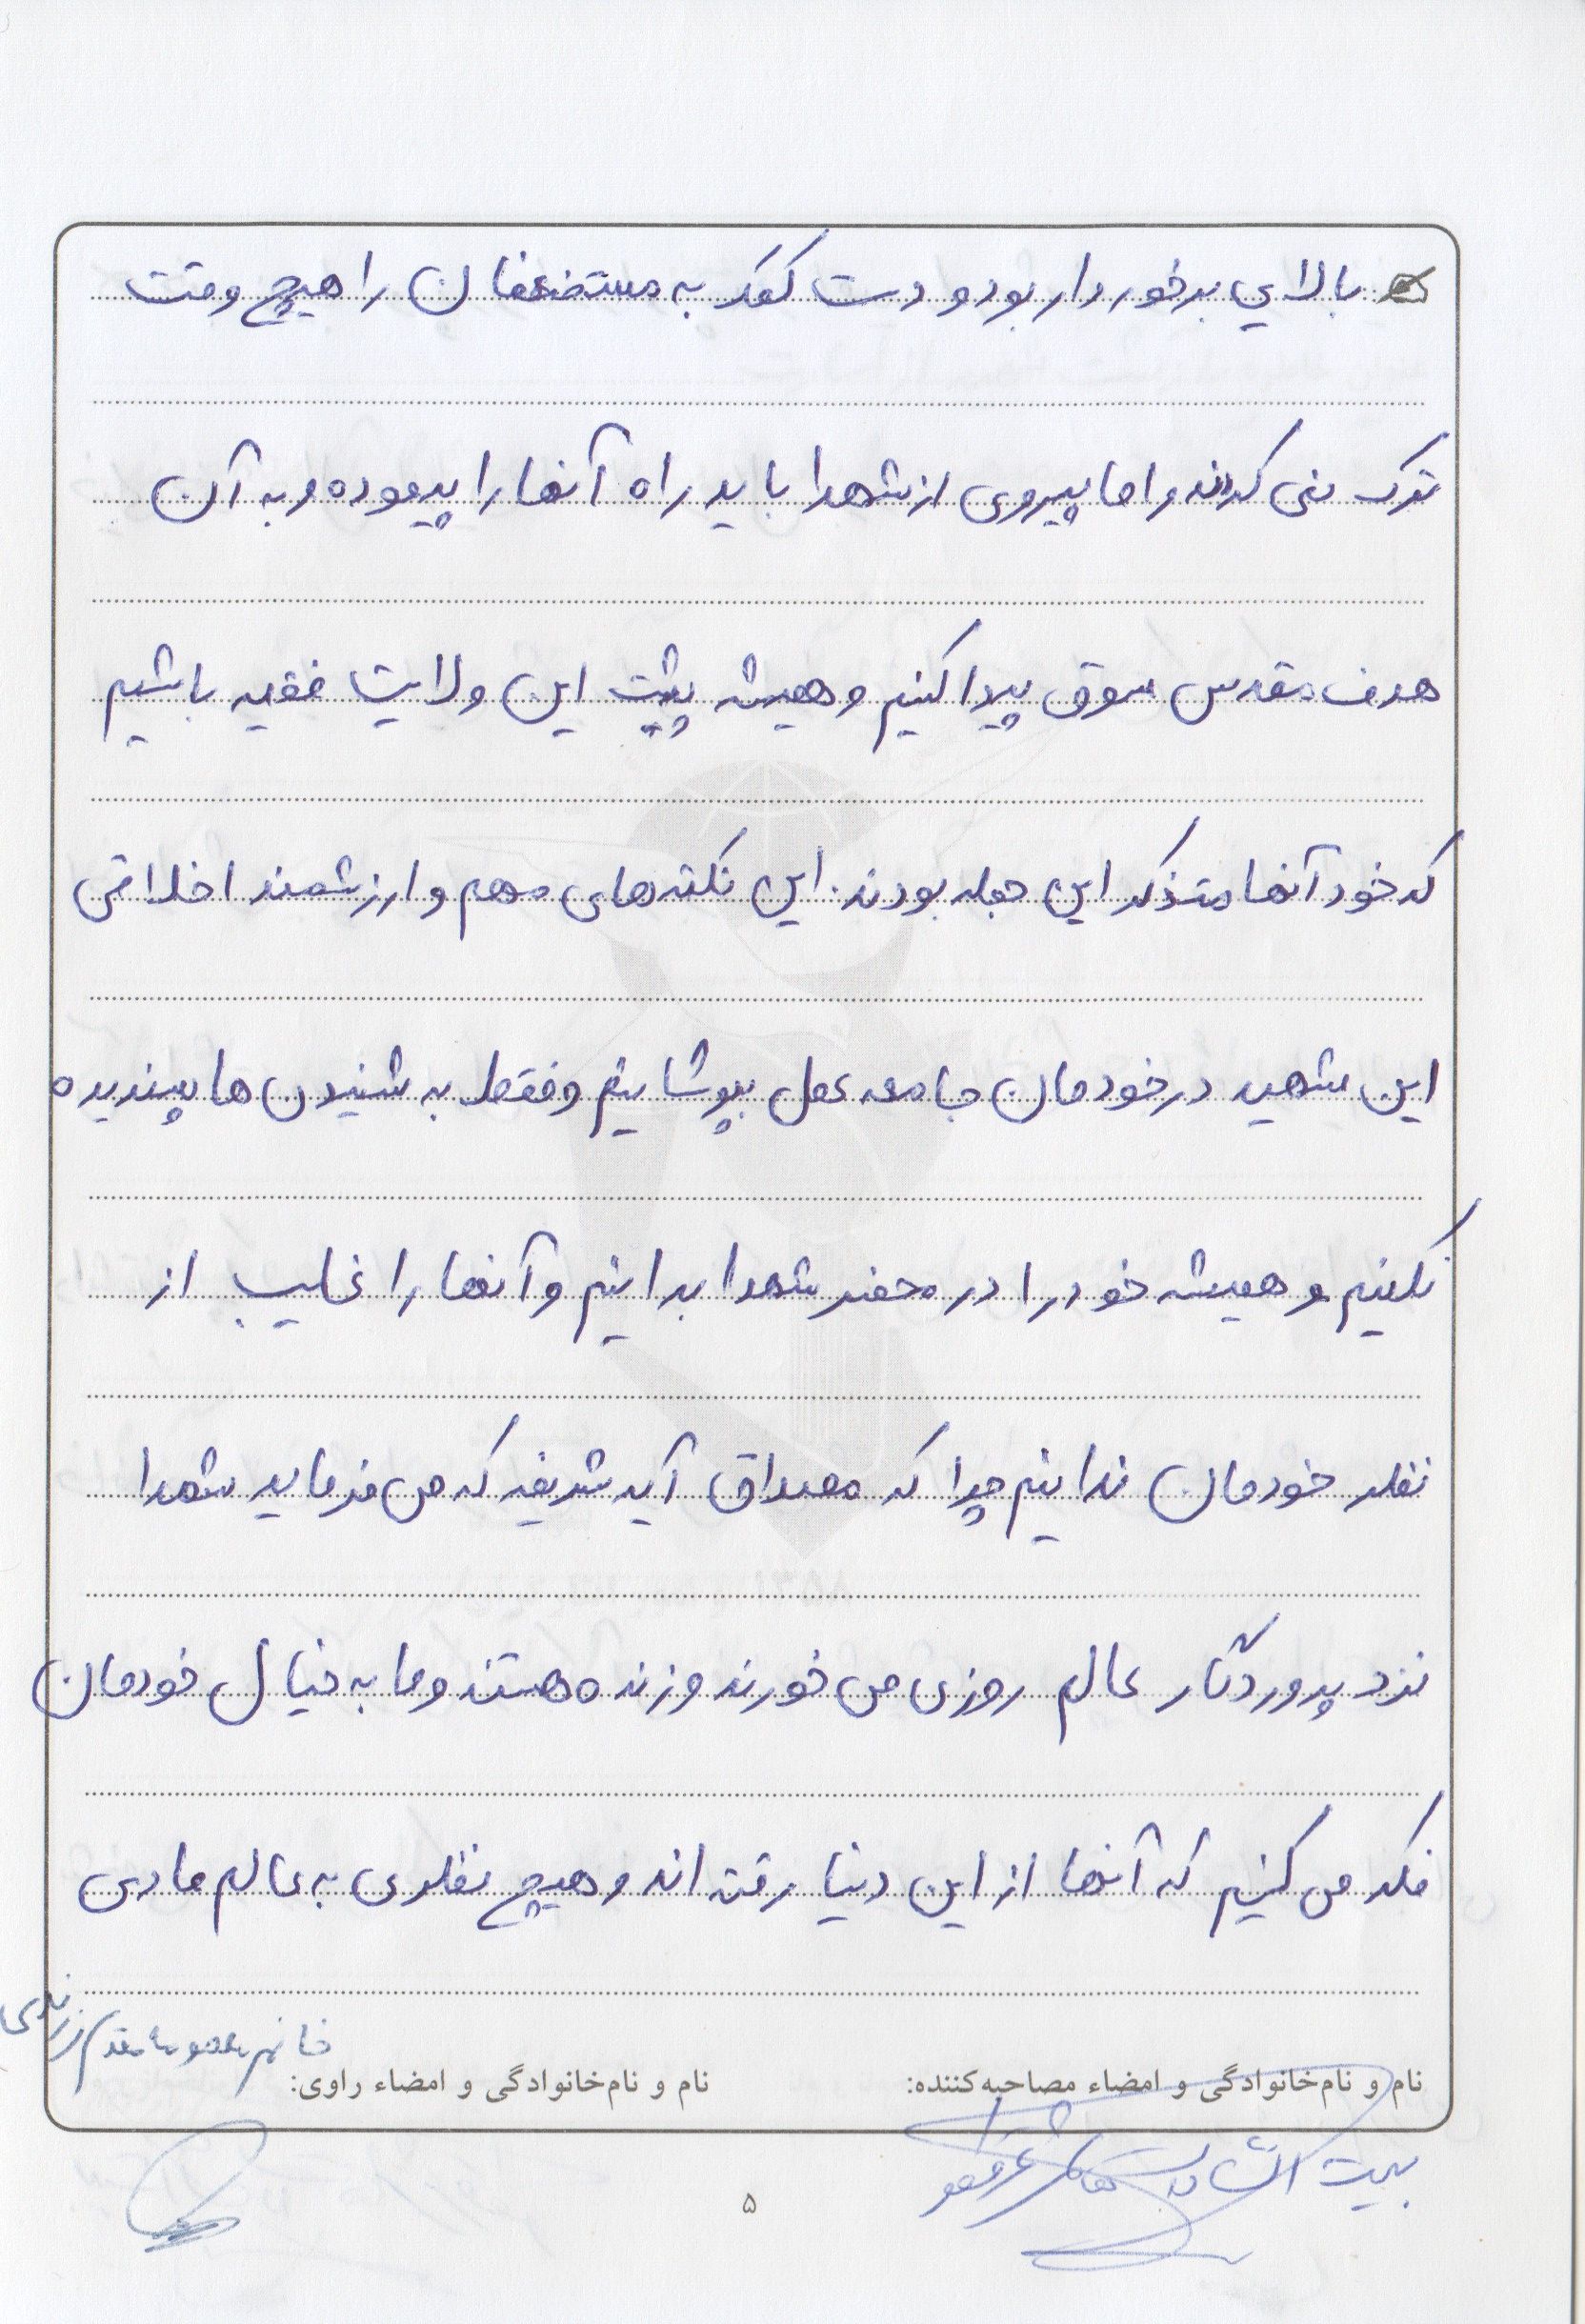 بالایی برخوردار بود و دست کمک به مستضعفان را هیچ وقت
ترک نمی کردند و اما پیروی از شهدا باید راه آنها را پیموده و به آن
هدف مقدس سوق پیدا کنیم و همیشه پشت این ولایت فقیه باشیم
که خود آنها متذکر این جمله بودند. این نکته های مهم و ارزشمند اخلاقی
این شهید در خودمان جامعه عمل بپوشانیم و فقط به شنیدن ها پسندیده
نکنیم و همیشه خود را در محضر شهدا بدانیم و آنها را غایب از
نظر خودمان ندانیم چرا که مصداق آیه شریفه که می فرماید شهدا
نزد پروردگار عالم روزی می خورند و زنده هستند و ما به خیال خودمان
فکر می کنیم که آنها از این دنیا رفته اند و هیچ نظری به عالم مادی
خانم معصومه مقدم
نام و نام‌خانوادگی و امضاء مصاحبه‌کننده: نام و نام‌خانوادگی و امضاء راوی:
۵